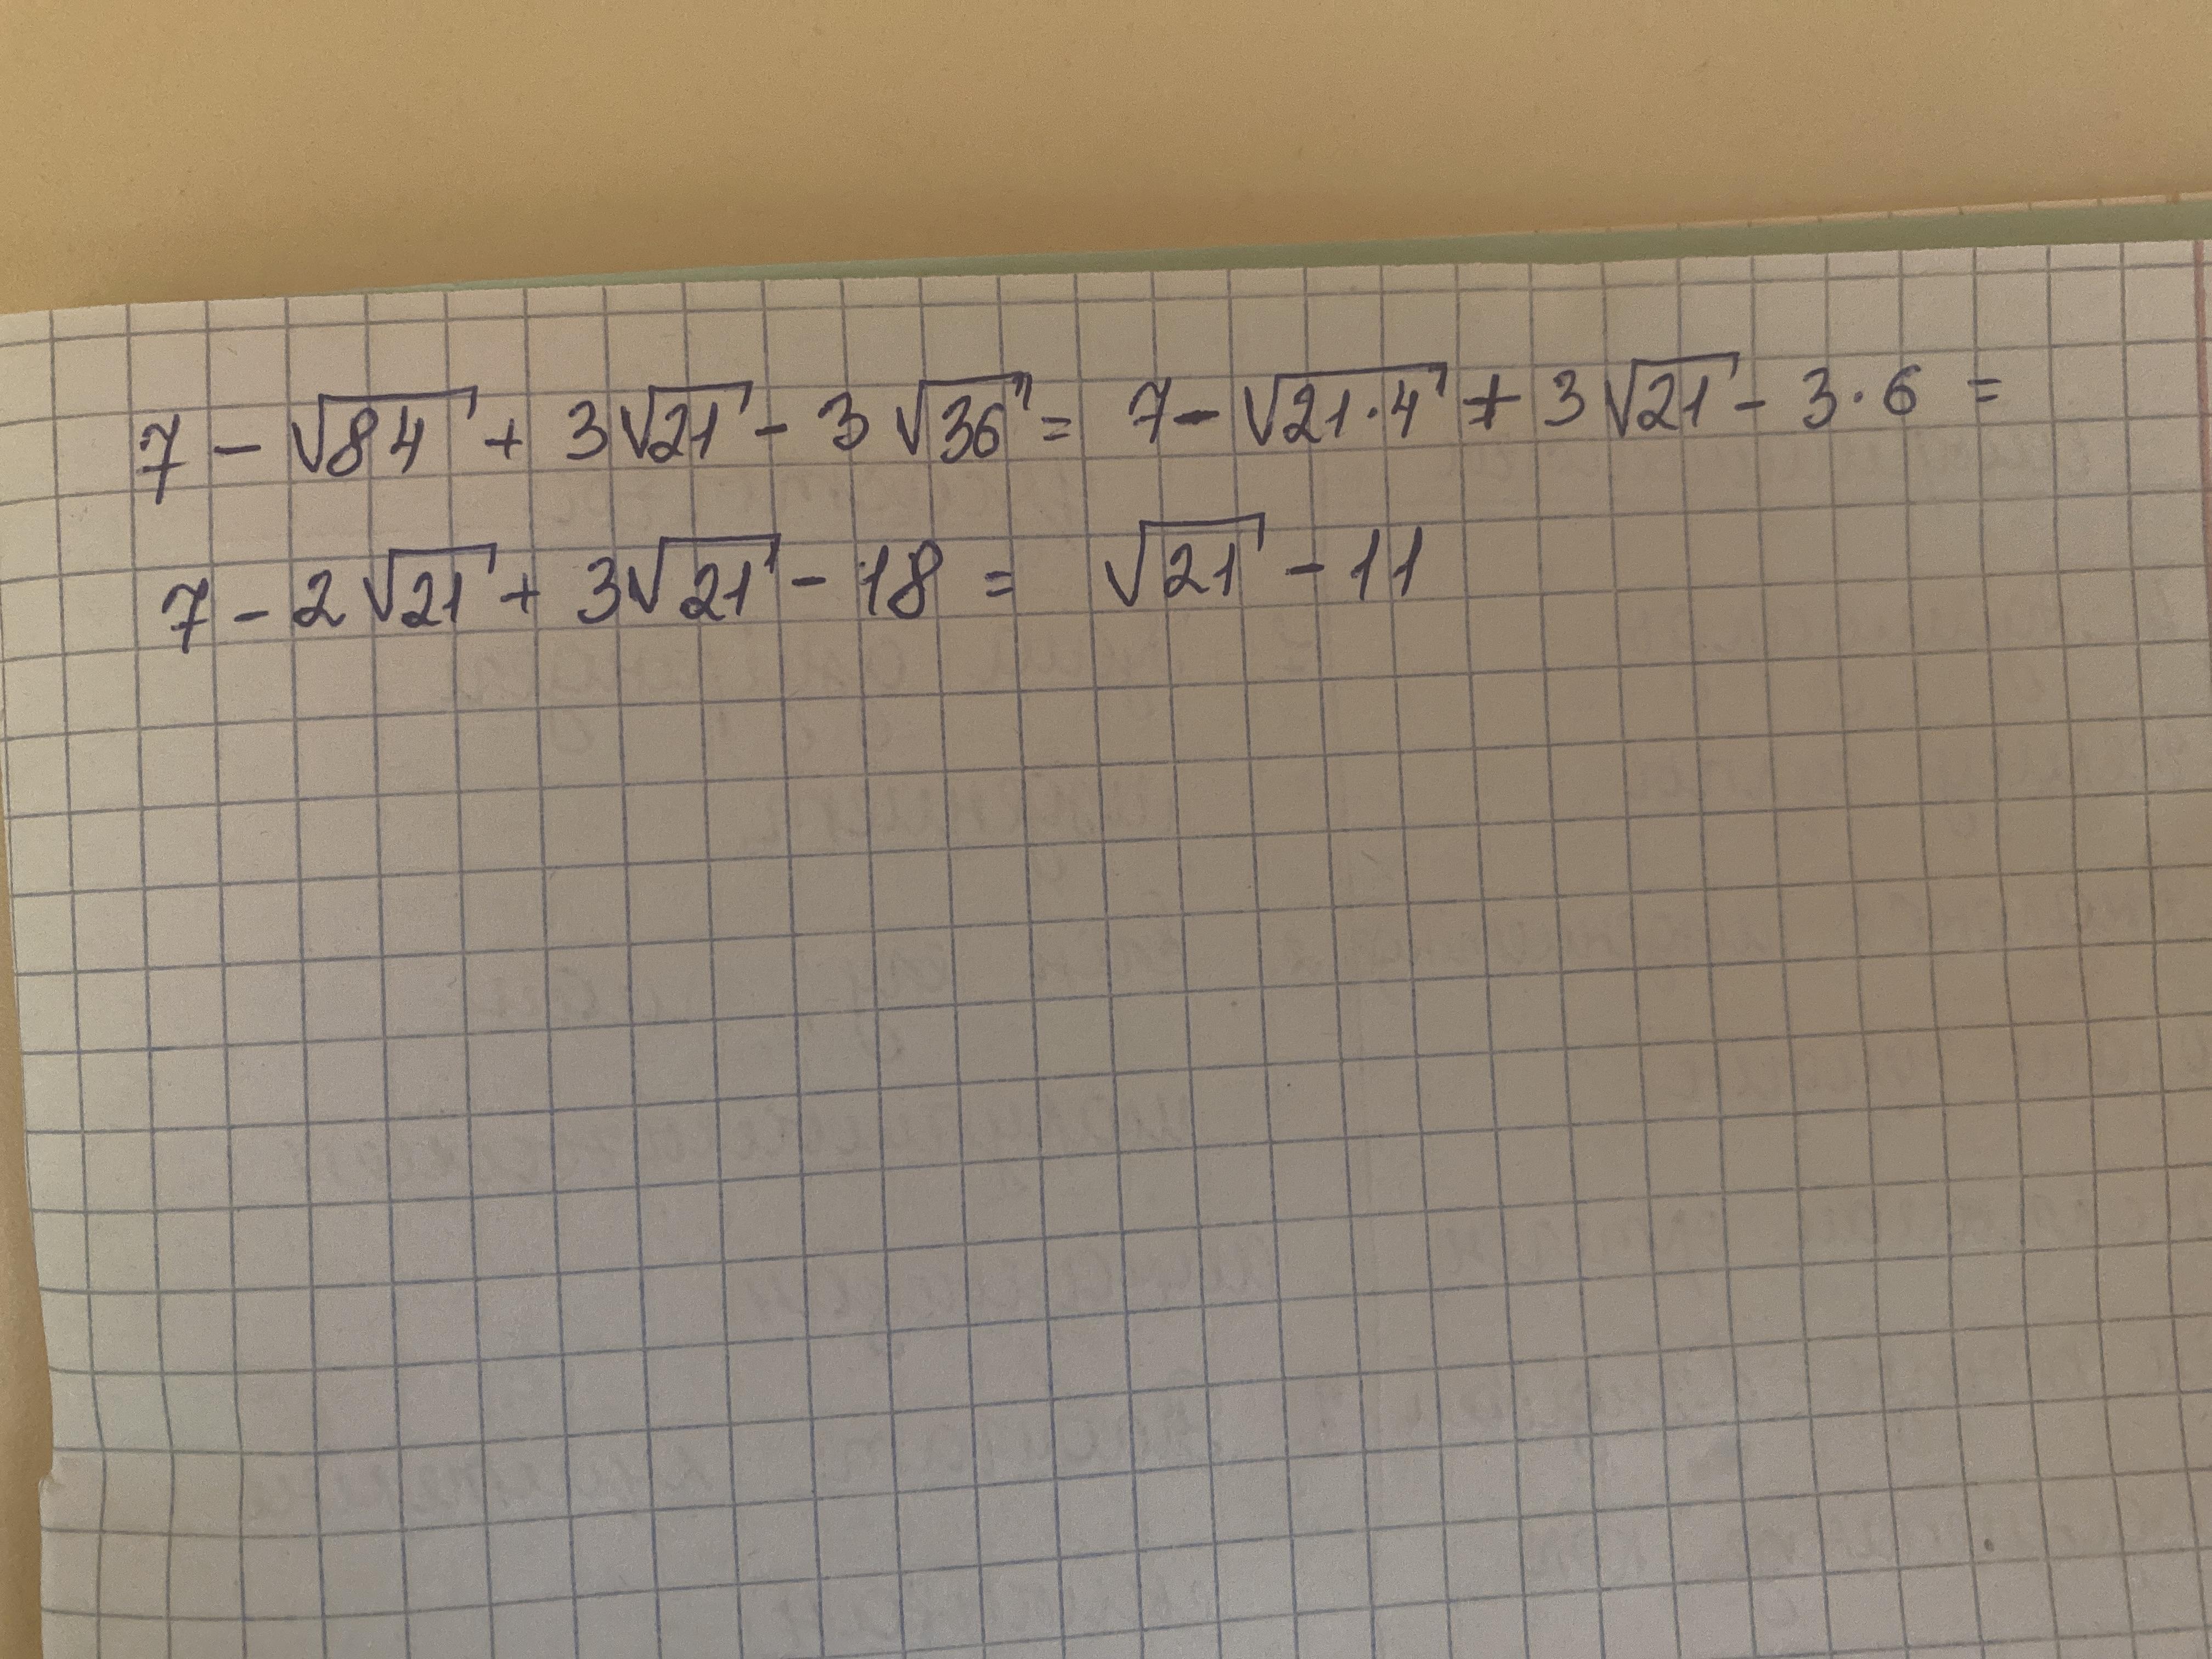 7 - √84 + 3√21 - 3√36 = 7 - √21·4 + 3√21 - 3·6 =
7 - 2√21 + 3√21 - 18 = √21 - 11